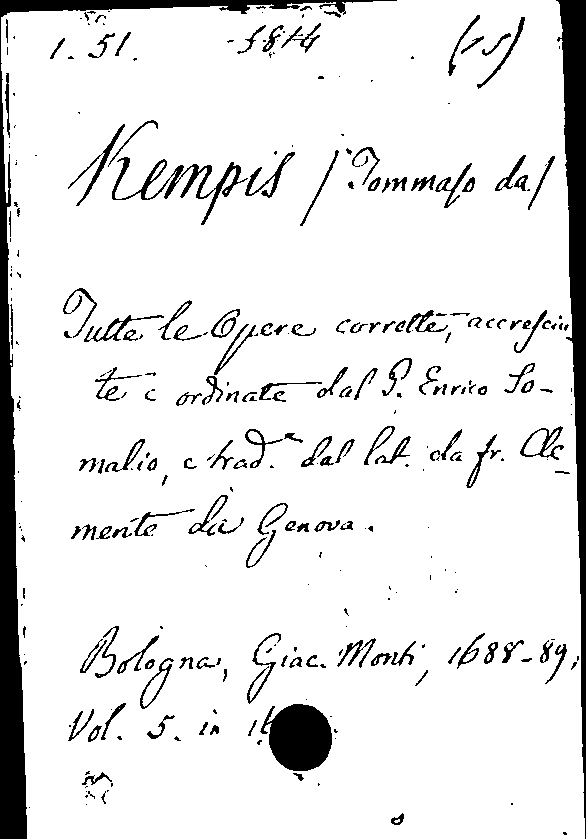 1. 51. 5814 (25)
Kempis / Tommaſo da /
Tutte le Opere corrette, accreſciu-
te e ordinate dal P. Enrico So-
malio, e trad.e dal lat. da fr. Cle-
mente da Genova.
Bologna, Giac. Monti, 1688-89,
Vol. 5. in